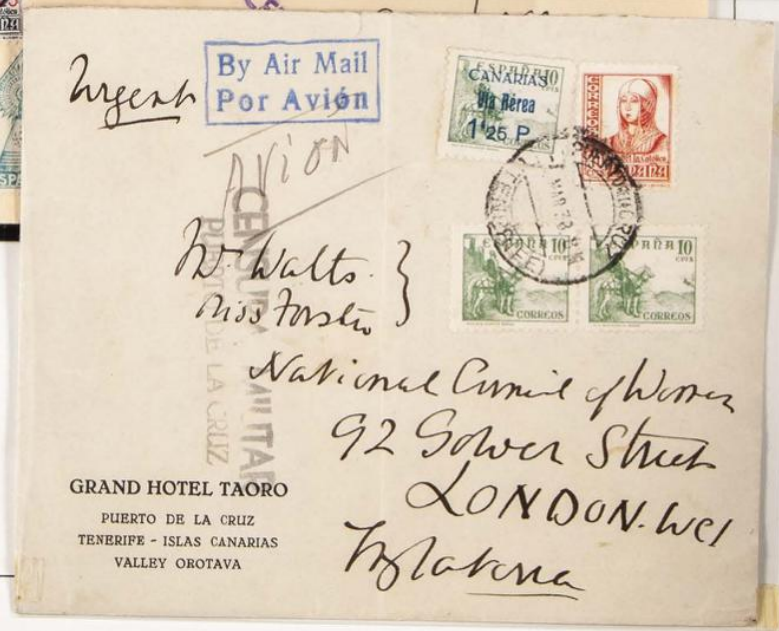 Urgent
By Air Mail
Por Avión
AVION
ESPAÑA 10
CANARIAS
Via Aérea
1'25 P.
CORREOS
CORREOS
ESPAÑA
MAR 38
(TENERIFE)
ESPAÑA 10
CTS
CORREOS
ESPAÑA 10
CTS
CORREOS
CENSURA MILITAR
PUERTO DE LA CRUZ
Mr. Walts.
Miss Forster
National Council of Women
92 Gower Street
LONDON. WC1
Inglaterra
GRAND HOTEL TAORO
PUERTO DE LA CRUZ
TENERIFE - ISLAS CANARIAS
VALLEY OROTAVA